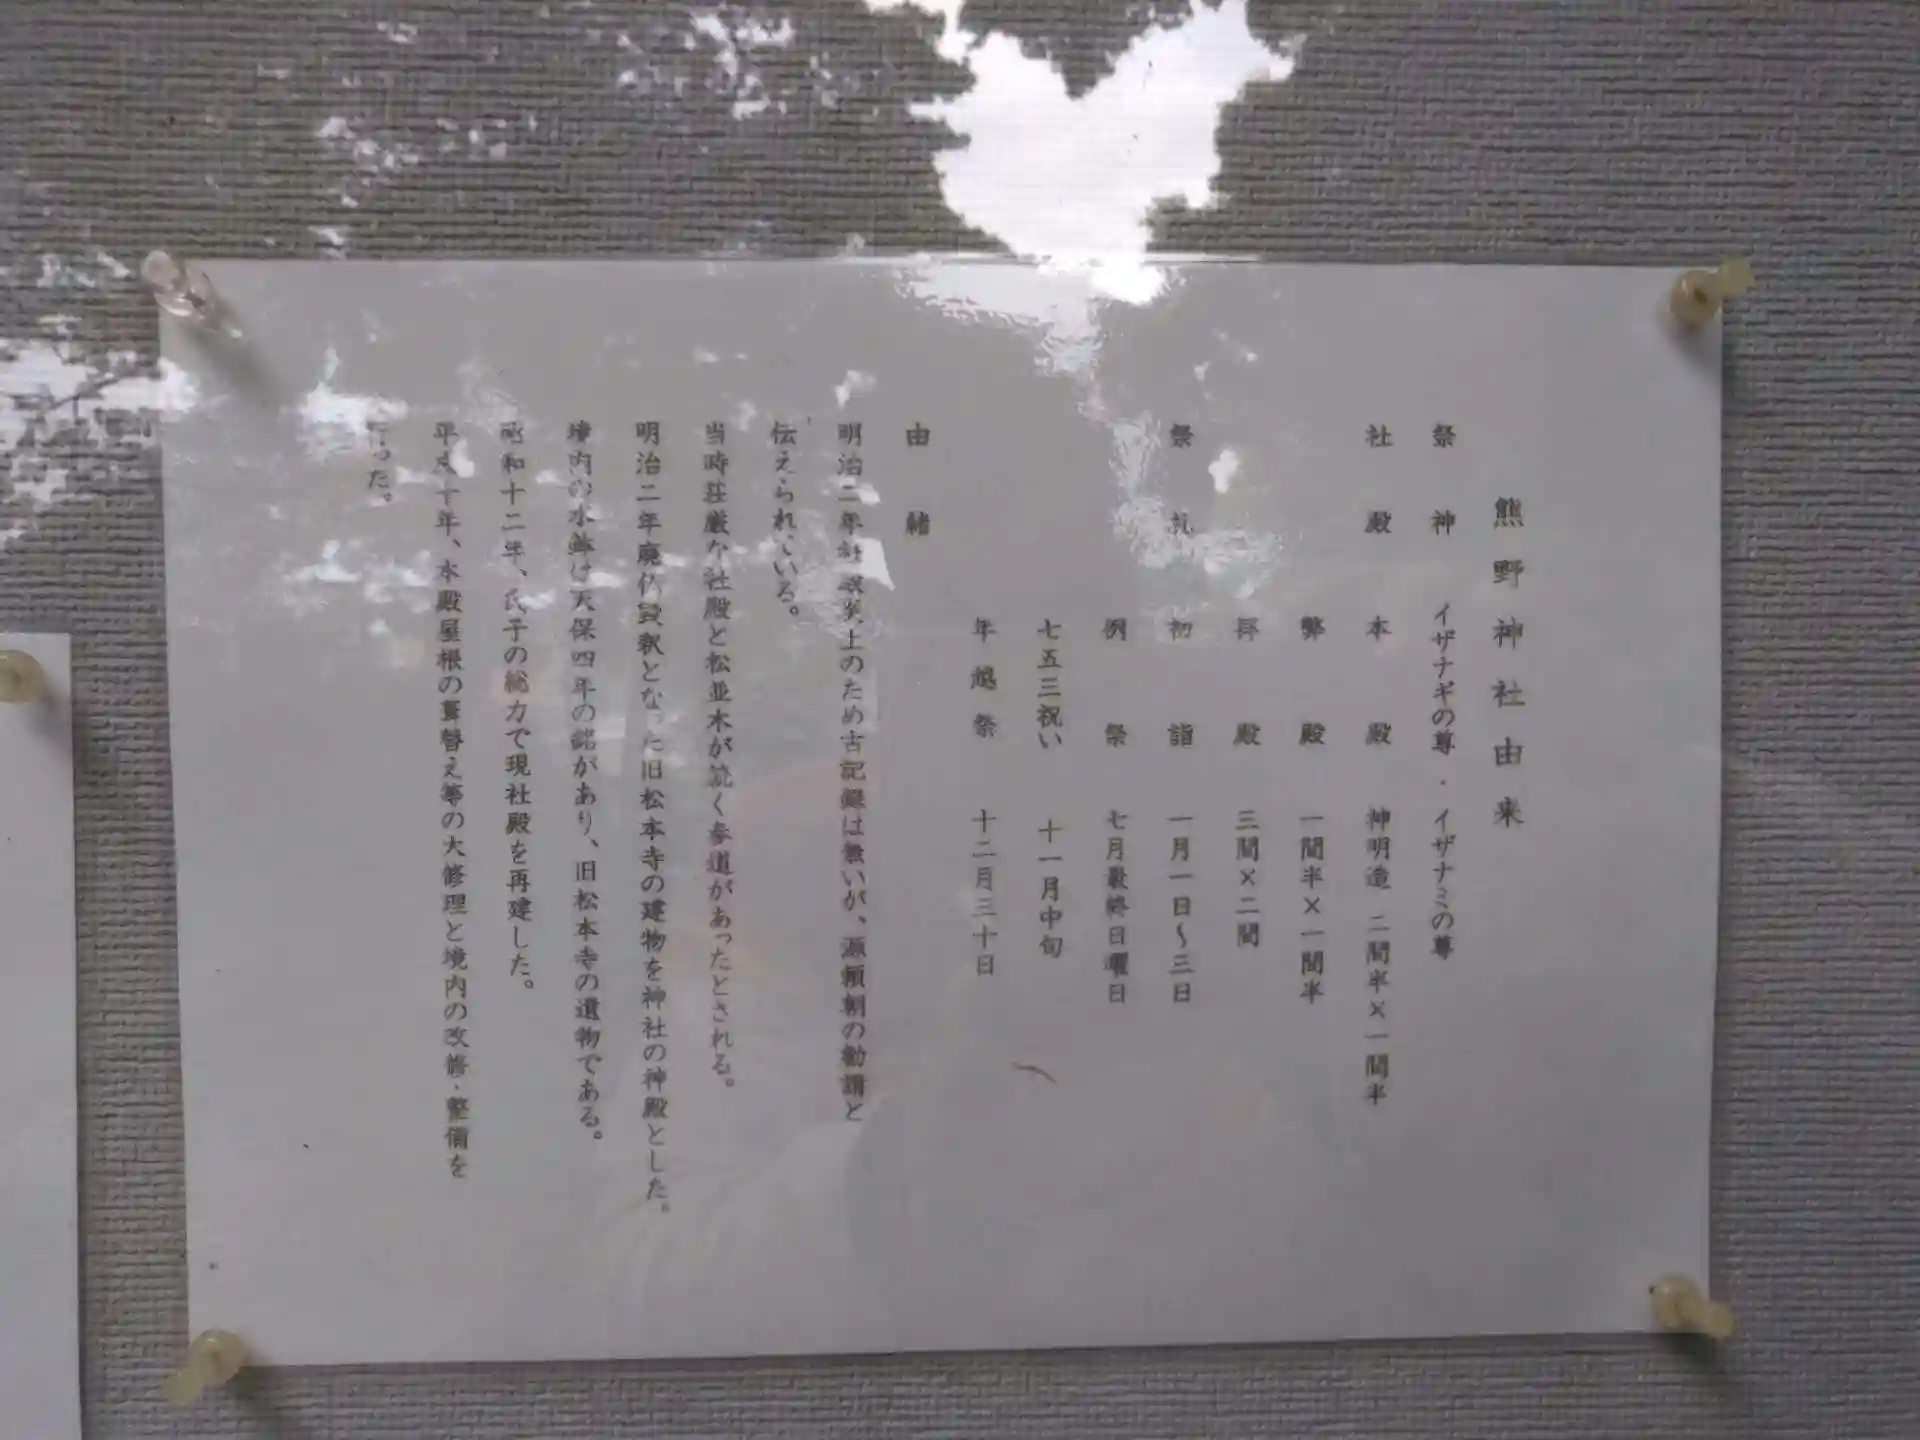 熊野神社由来
祭神 イザナギの尊・イザナミの尊
社殿 本殿 神明造 二間半×一間半
弊殿 一間半×一間半
拝殿 三間×二間
祭礼 初詣 一月一日～三日
例祭 七月最終日曜日
七五三祝い 十一月中旬
年越祭 十二月三十日
由緒
明治二年社殿炎上のため古記録は無いが、源頼朝の勧請と
伝えられいる。
当時荘厳な社殿と松並木が続く参道があったとされる。
明治二年廃仏毀釈となった旧松本寺の建物を神社の神殿とした。
境内の水鉢は天保四年の銘があり、旧松本寺の遺物である。
昭和十二年、氏子の総力で現社殿を再建した。
平成十年、本殿屋根の葺替え等の大修理と境内の改修・整備を
行った。